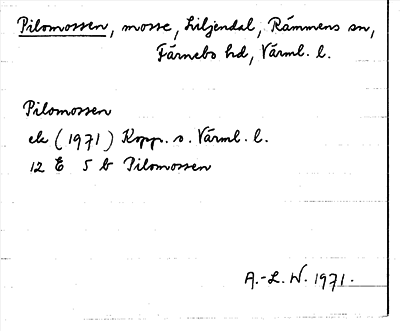 Pilomossen, mosse, Liljendal, Rämmens sn,
Färnebo hd, Värml. l.
Pilomossen
ek (1971) Kopp. o. Värml. l.
12 E 5 b Pilomossen
A.-L. W. 1971.